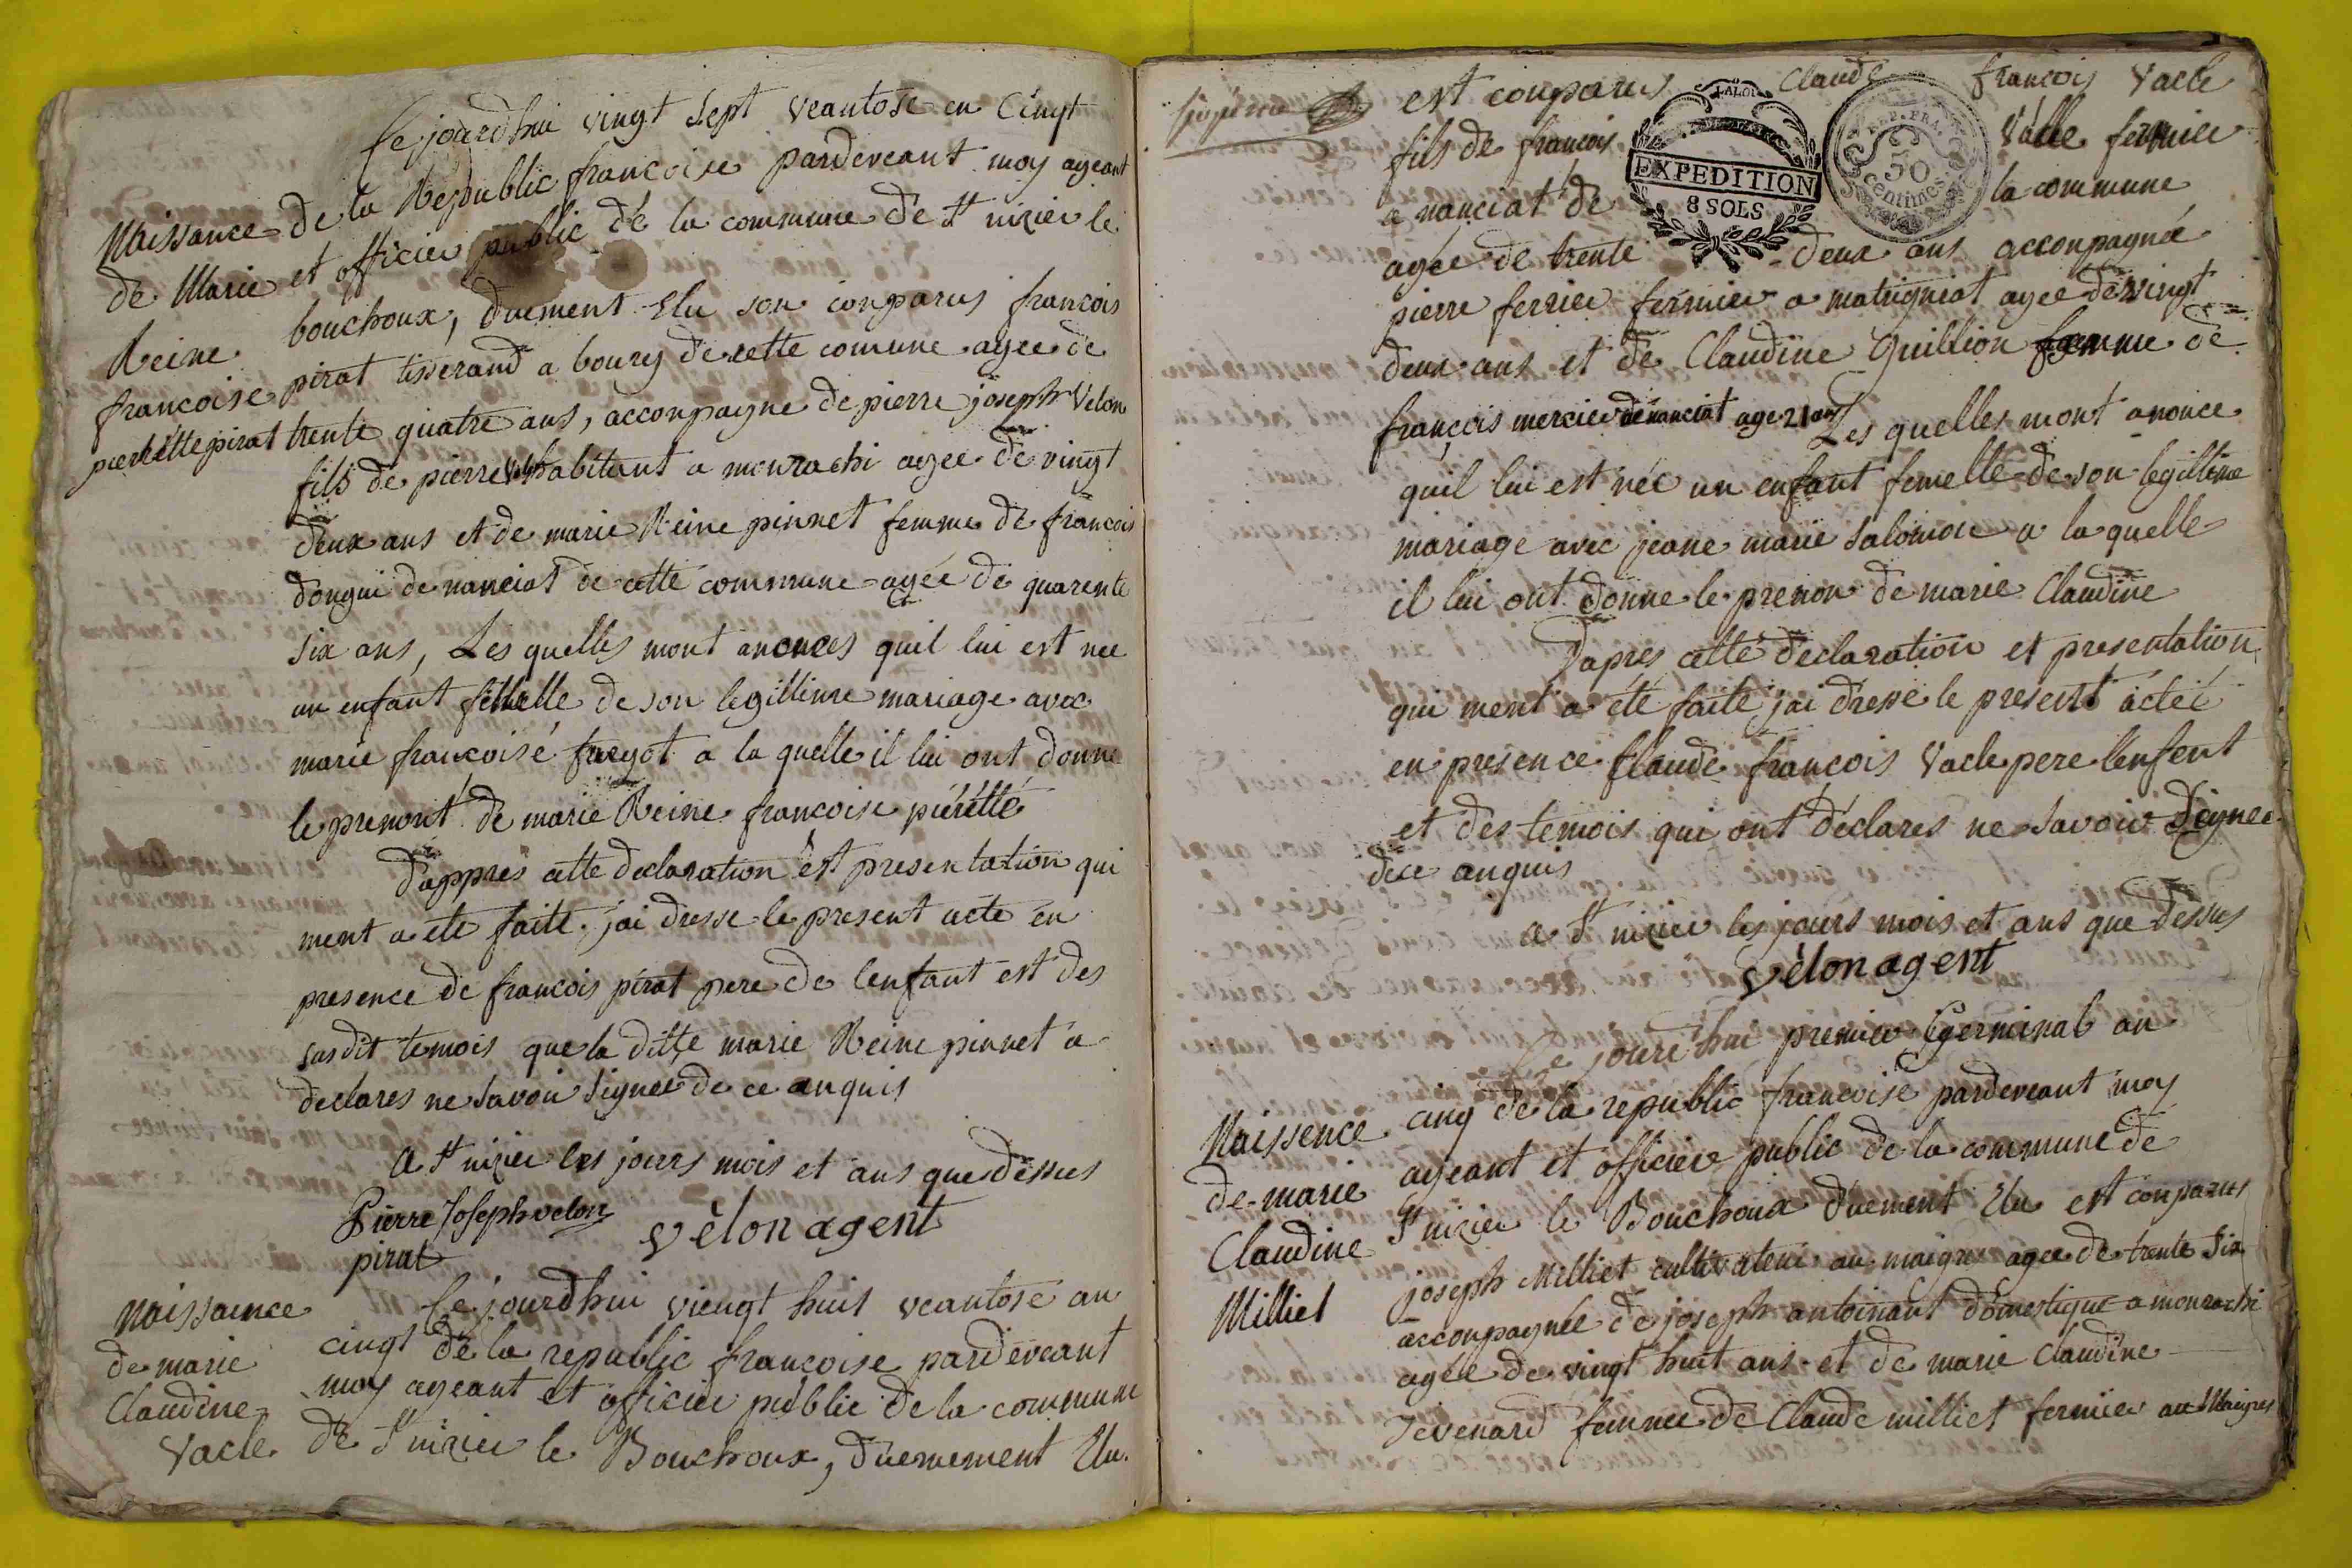 Cejourdhui vingt sept veantose en Cingt
Naissance de la Republic francoise pardeveant moy ageant
de Marie et officier public de la commune de St nizier le
Reine bouchoux, duement Elu son conparus francois
francoise pirat tisserand a bourg de cette comune agee de
pierette pirat trente quatre ans, acconpagne de pierre joseph Velon
fils de pierre habitant a monrachi agee de vingt
deux ans et de marie Reine pinnet femme de francois
dongui de nanciat de cette commune agée de quarente
six ans, Les quelles mont anonces quil lui est nee
un enfant femelle de son legillime mariage avec
marie francoise a la quelle il lui ont donne
le prenont de marie Reine francoise piérétté
dappres cette declaration est presentation qui
ment a ete faite. jai dresse le present acte en
presence de francois pirat pere de lenfant est des
susdit temois que la ditte marie Reine pinnet a
declares ne savoir Signee de ce anquis
a St nizier les jours mois et ans que dessus
Pierre Joseph velon
vèlon agent
pirat
Naissaence Cejourdhui viengt huit veantose an
de marie cingt de la republic francoise pardeveant
Claudine moy ageant et officier public de la commune
Vacle de St nizier le Bouchoux, duemement Elu
est conparus Claude francois Vacle
fils de francois Vacle fermier
a nanciat de la commune
agée de trente deux ans acconpagnée
LA LOI
EXPEDITION
8 SOLS
REP. FRA.
50
centimes
pierre ferrier fermier a matrigniat agee de vingt
deux ans et de Claudine Guillion femme de
françois mercier de nanciat age 21 ans Les quelles mont anonce
quil lui est née un enfant femelle de son legillime
mariage avec jeane marie Salomon a la quelle
il lui ont donne le prenon de marie Claudine
Dapres cette declaration et presentation
qui ment a été faite jai drese le present acteé
en presence Claude francois Vacle pere lenfent
et des temois qui ont déclares ne savoir Signee
dece anquis
a St nizier les jours mois et ans que dessus
vèlon agent
Ce joure hui premier germinal an
Naissence cinq de la republic francoise pardeveant moy
de marie ageant et officier public de la commune de
Claudine St nizier le Bouchoux duement Elu est conparus
Milliet joseph Milliet cultivateur au maigre agee de trente Six
acconpagnee de joseph antoinant domestique a monrachi
agée de vingt huit ans et de marie Claudine
Jevenard femmee de Claude milliet fermier au Maigres